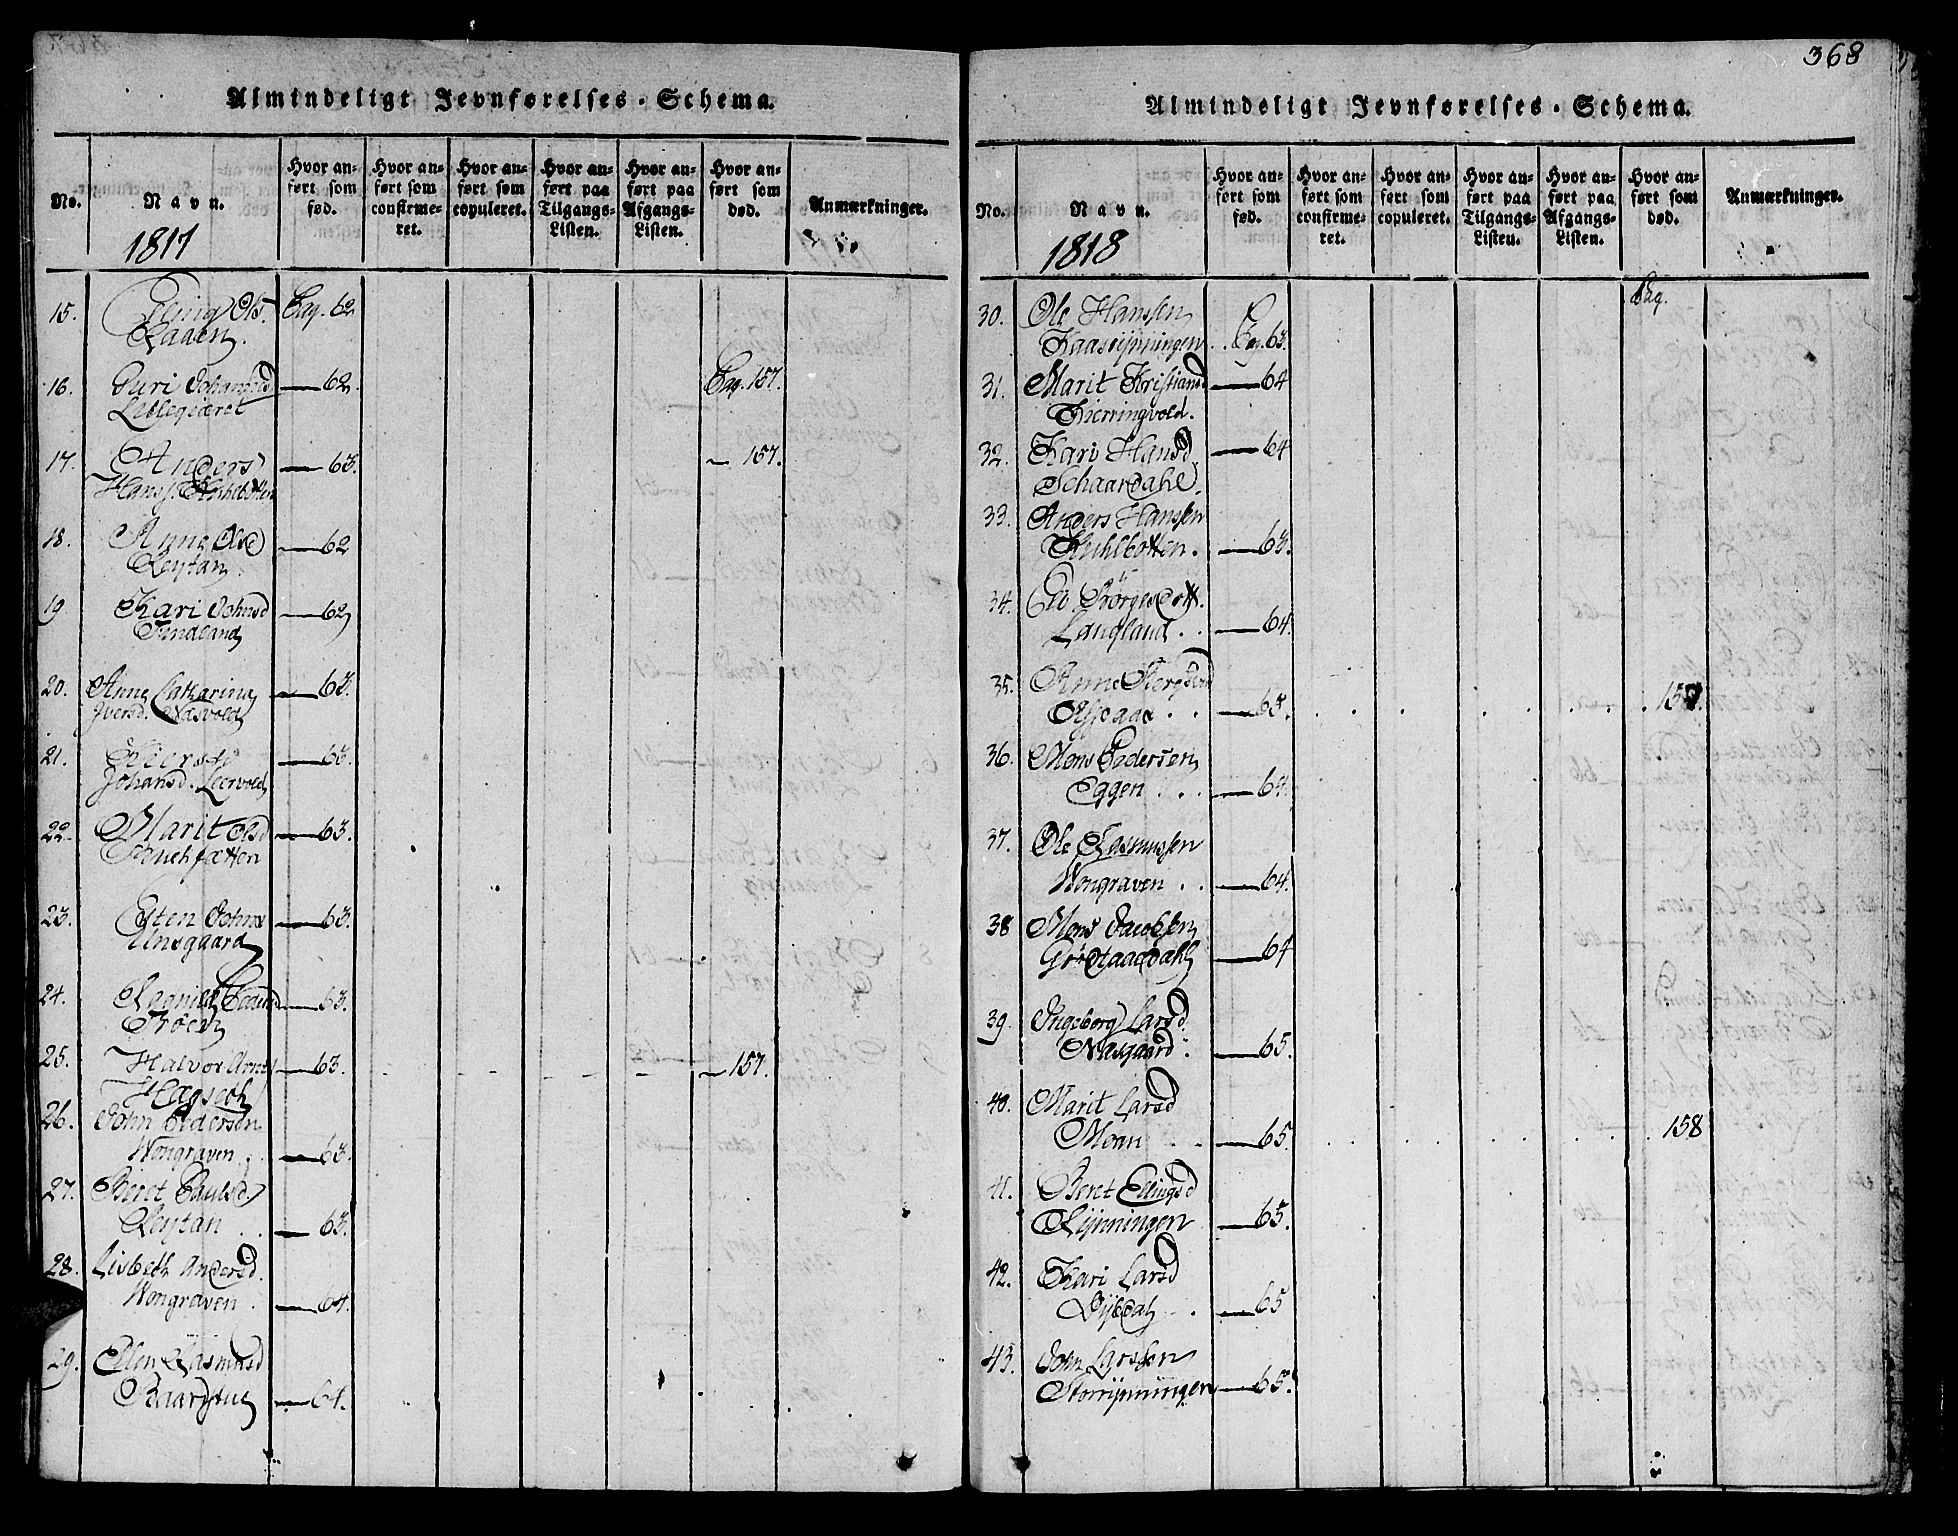 368
Almindeligt Jevnførelses-Schema.
No.
Navn.
Hvor an-
ført som
fød.
Hvor an-
ført som
confirme-
ret.
Hvor an-
ført som
copuleret.
Hvor an-
ført paa
Tilgangs-
Listen.
Hvor an-
ført paa
Afgangs-
Listen.
Hvor an-
ført som
død.
Anmærkninger.
1817
15. Elling Ols. Pag. 62
Raaen.
16. Guri Johansd — 62. Pag. 157.
17. Anders — 63. — 157.
Hanss. Kuhlbotten
18. Anne Olsd — 62
Leytan.
19 Kari Johnsd — 62
Findland
20. Anne Catharina — 63.
Iversd. Næsvold
21. Kiersti — 63.
Johansd. Leervold
22. Marit Olsd — 63.
23. Gften Johns — 63.
Unsgaard
24. Ragnild Pedersd — 63.
Røen
25. Halvor Arnts — 63. — 157.
Hagseth
26. John Pedersen
Wongraven. — 63.
27. Beret Paulsd.
Leytan — 63.
28. Lisbeth Andersd.
Wongraven. — 64.
29. Ellen Rasmusd
Baardstue — 64.
Almindeligt Jevnførelses-Schema.
No.
Navn.
Hvor an-
ført som
fød.
Hvor an-
ført som
confirme-
ret.
Hvor an-
ført som
copuleret.
Hvor an-
ført paa
Tilgangs-
Listen.
Hvor an-
ført paa
Afgangs-
Listen.
Hvor an-
ført som
død.
Anmærkninger.
1818
Pag.
30. Ole Hansen
Kaasrypningen. Pag. 63.
31. Marit Kristiansd — 64
Kierringvold.
32. Kari Hansd. — 64
Schaardahl.
33. Anders Hansen
Kuhlbotten. — 63.
34. Børgesdatt.
Langland — 64.
35. Anne
Aspaas — 65. 157.
36. Mons Pedersen
Eggen — 64.
37. Ole Rasmussen
Wongraven — 64.
38 Mons Jacobsen
Grødtaaedahl — 64
39. Ingeborg Larsd.
Næsgaard. — 65.
40. Marit Larsd
Moan — 65. 158
41. Beret Ellingsd
Rypningen — 65.
42. Kari Larsd
Dysdal — 65
43. John Larssen
Storrypningen — 65.